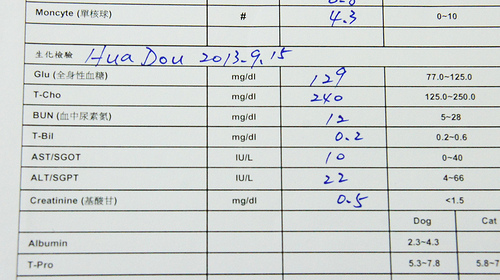 Moncyte (單核球) # 4.3 0~10
生化檢驗 Hua Dou 2013.9.15
Glu (全身性血糖) mg/dl 129 77.0~125.0
T-Cho mg/dl 240 125.0~250.0
BUN (血中尿素氮) mg/dl 12 5~28
T-Bil mg/dl 0.2 0.2~0.6
AST/SGOT IU/L 10 0~40
ALT/SGPT IU/L 22 4~66
Creatinine (基酸甘) mg/dl 0.5 <1.5
Dog Cat
Albumin 2.3~4.3
T-Pro 5.3~7.8 5.8~7